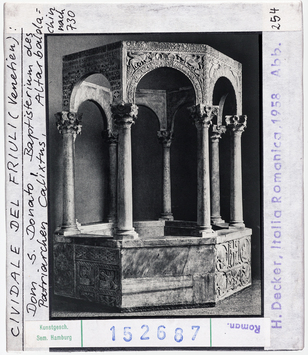 CIVIDALE DEL FRIULI (Venetien):
Dom S. Donato: Baptisterium des
Patriarchen Calixtus, Altarbalda=
chin
nach
730
254
H. Decker, Italia Romanica 1958 Abb.
Kunstgesch.
Sem. Hamburg
152687
Roman.